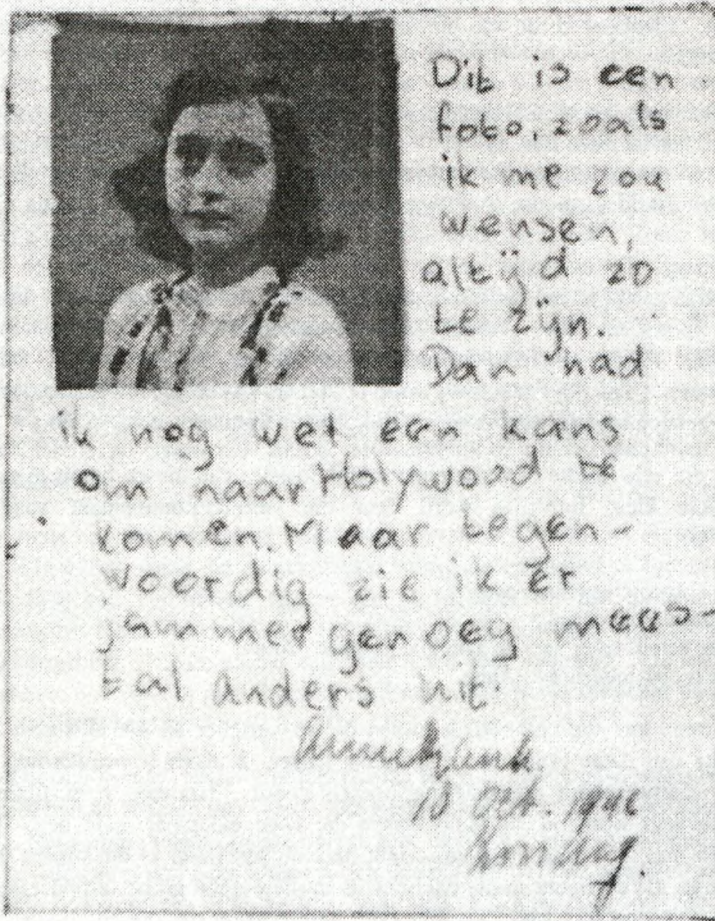 Dit is een
foto, zoals
ik me zou
wensen,
altijd zo
te zijn.
Dan had
ik nog wel een kans
om naar Holywood te
komen. Maar tegen-
woordig zie ik er
jammer genoeg mees-
tal anders uit.
Anne Frank
10 Oct. 1942
Zondag.